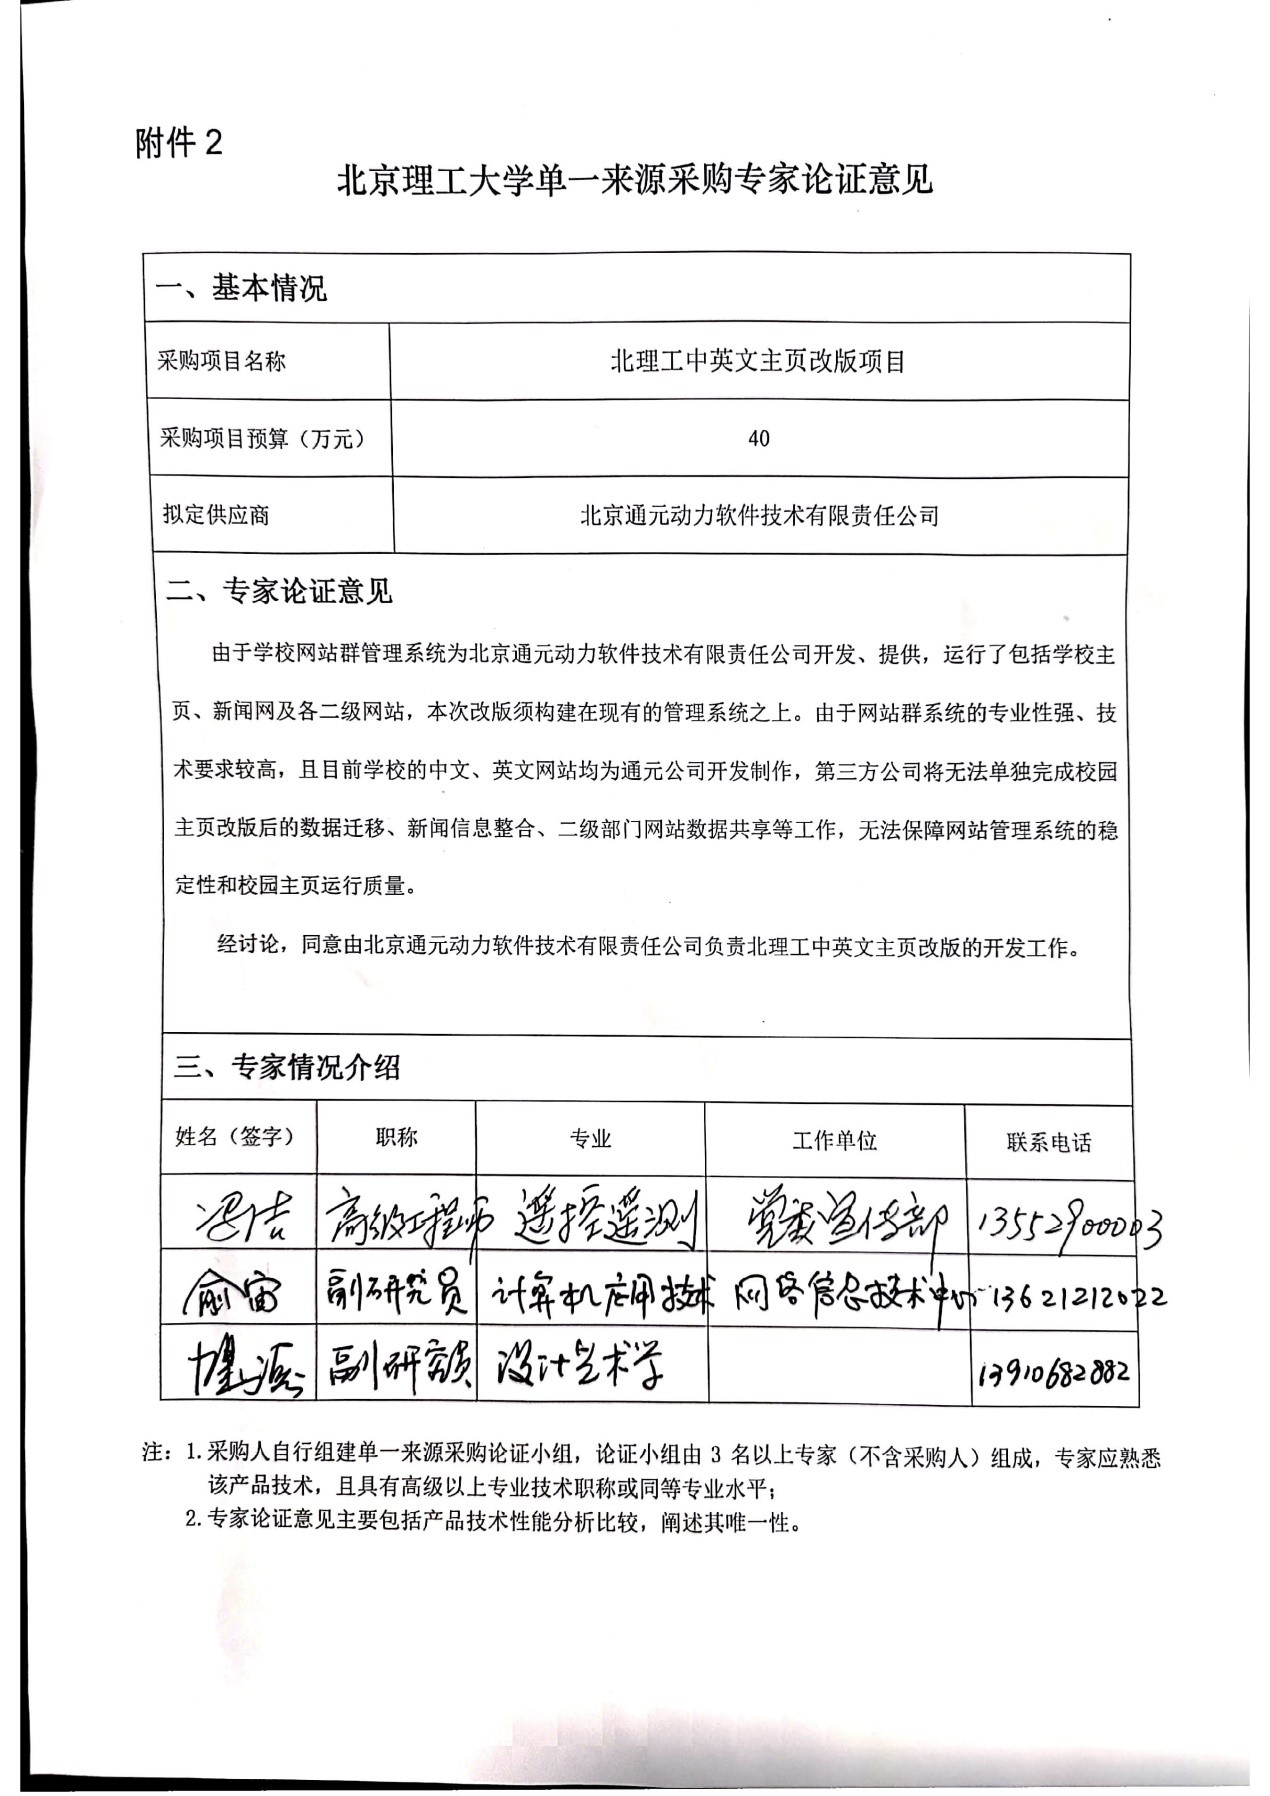 附件 2
北京理工大学单一来源采购专家论证意见
一、基本情况
采购项目名称 北理工中英文主页改版项目
采购项目预算（万元） 40
拟定供应商 北京通元动力软件技术有限责任公司
二、专家论证意见
由于学校网站群管理系统为北京通元动力软件技术有限责任公司开发、提供，运行了包括学校主
页、新闻网及各二级网站，本次改版须构建在现有的管理系统之上。由于网站群系统的专业性强、技
术要求较高，且目前学校的中文、英文网站均为通元公司开发制作，第三方公司将无法单独完成校园
主页改版后的数据迁移、新闻信息整合、二级部门网站数据共享等工作，无法保障网站管理系统的稳
定性和校园主页运行质量。
经讨论，同意由北京通元动力软件技术有限责任公司负责北理工中英文主页改版的开发工作。
三、专家情况介绍
姓名（签字） 职称 专业 工作单位 联系电话
高级工程师 遥控遥测 党委宣传部 13552900003
俞宙 副研究员 计算机应用技术 网络信息技术中心 13621212022
副研究员 设计艺术学 13910682882
注：1.采购人自行组建单一来源采购论证小组，论证小组由 3 名以上专家（不含采购人）组成，专家应熟悉
该产品技术，且具有高级以上专业技术职称或同等专业水平；
2.专家论证意见主要包括产品技术性能分析比较，阐述其唯一性。